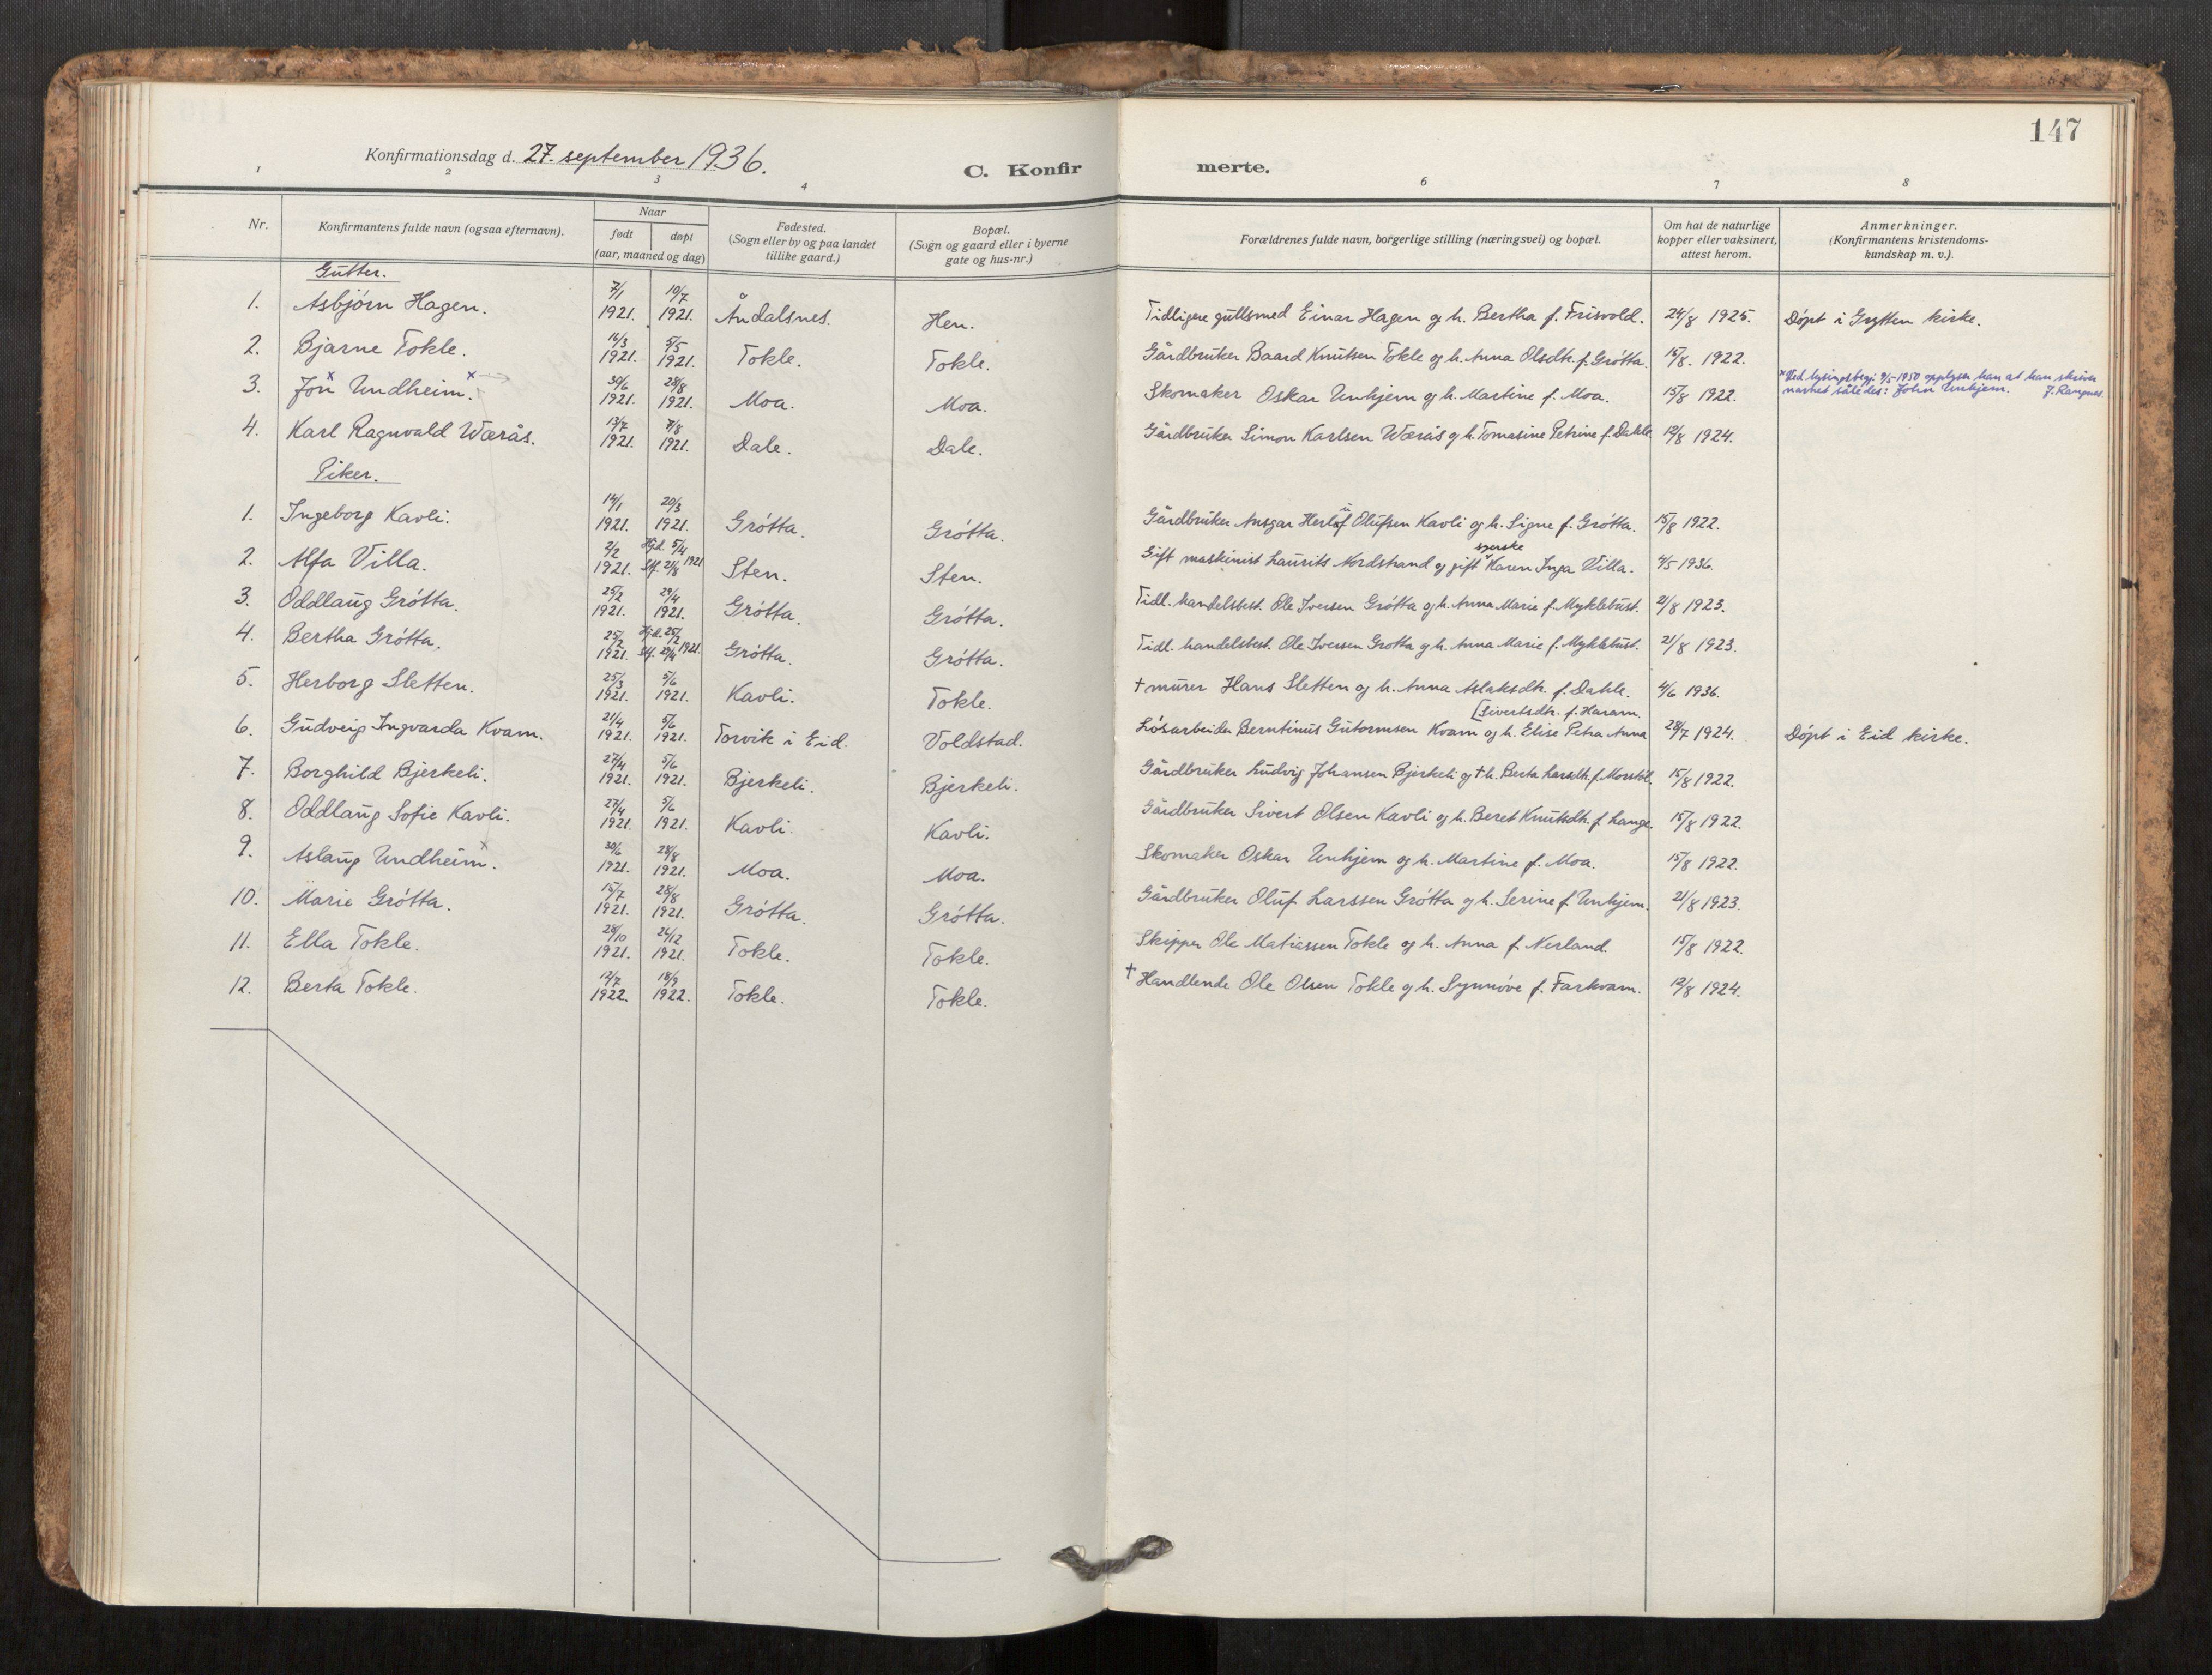 147
Konfirmationsdag d. 27. september 1936.
C. Konfir merte.
1 2 3 4 6 7 8
Nr. Konfirmantens fulde navn (ogsaa efternavn). Naar født døpt (aar, maaned og dag) Fødested. (Sogn eller by og paa landet tillike gaard.) Bopæl. (Sogn og gaard eller i byerne gate og hus-nr.) Forældrenes fulde navn, borgerlige stilling (næringsvei) og bopæl. Om hat de naturlige kopper eller vaksinert, attest herom. Anmerkninger. (Konfirmantens kristendoms-kundskap m. v.).
Gutter.
1. Asbjørn Hagen. 7/1 1921. 10/7 1921. Åndalsnes. Hen. Tidligere gullsmed Einar Hagen og h. Bertha f. Frisvold. 24/8 1925. Døpt i Grytten kirke.
2. Bjarne Tokle. 16/3 1921. 5/5 1921. Tokle. Tokle. Gårdbruker Baard Knutsen Tokle og h. Anna Olsdtr. f. Grøtta. 15/8. 1922.
3. Jon x Undheim. x 30/6 1921. 28/8 1921. Moa. Moa. Skomaker Oskar Unhjem og h. Martine f. Moa. 15/8 1922. x Ved lysingsbegj. 9/5-1950 opplyser han at han skriver navnet således: John Unhjem. J. Rangnes.
4. Karl Ragnvald Wærås. 13/7 1921. 7/8 1921. Dale. Dale. Gårdbruker Simon Karlsen Wærås og h. Tomasine Petrine f. Dahle 12/8 1924.
Piker.
1. Ingeborg Kavli. 14/1 1921. 20/3 1921. Grøtta. Grøtta. Gårdbruker Ansgar Herlof Olufsen Kavli og h. Signe f. Grøtta. 15/8 1922.
2. Alfa Villa. 2/2 1921. Hjd. 5/4 Stf. 21/8 1921 Sten. Sten. Gift maskinist Laurits Nordstrand og gift syerske Karen Inga Villa. 4/5 1936.
3. Oddlaug Grøtta. 25/2 1921. 29/4 1921. Grøtta. Grøtta. Tidl. handelsbest. Ole Iversen Grøtta og h. Anna Marie f. Myklebust. 21/8 1923.
4. Bertha Grøtta. 25/2 1921. Hjd. 25/2 Stf. 29/4 1921. Grøtta. Grøtta. Tidl. handelsbest. Ole Iversen Grøtta og h. Anna Marie f. Myklebust. 21/8 1923.
5. Herborg Sletten. 25/3 1921. 5/6 1921. Kavli. Tokle. † murer Hans Sletten og h. Anna Aslaksdtr. f. Dahle. 4/6 1936.
6. Gudveig Ingvarda Kvam. 21/4 1921. 5/6 1921. Torvik i Eid. Voldstad. Løsarbeider Berntinus Gutormsen Kvam og h. Elise Petra Anna [Sivertsdtr. f. Haram. 28/7 1924. Døpt i Eid kirke.
7. Borghild Bjerkeli. 27/4 1921. 5/6 1921. Bjerkeli. Bjerkeli. Gårdbruker Ludvig Johansen Bjerkeli og † h. Berta Larsdtr. f. Morstøl. 15/8 1922.
8. Oddlaug Sofie Kavli. 27/4 1921. 5/6 1921. Kavli. Kavli. Gårdbruker Sivert Olsen Kavli og h. Beret Knutsdtr. f. Lange. 15/8 1922.
9. Aslaug Undheim. x 30/6 1921. 28/8 1921. Moa. Moa. Skomaker Oskar Unhjem og h. Martine f. Moa. 15/8 1922.
10. Marie Grøtta. 15/7 1921. 28/8 1921. Grøtta. Grøtta. Gårdbruker Oluf Larssen Grøtta og h. Serine f. Unhjem. 21/8 1923.
11. Ella Tokle. 28/10 1921. 26/12 1921. Tokle. Tokle. Skipper Ole Matiassen Tokle og h. Anna f. Nerland. 15/8 1922.
12. Berta Tokle. 12/7 1922. 18/9 1922. Tokle. Tokle. † Handlende Ole Olsen Tokle og h. Synnøve f. Farkvam. 12/8 1924.